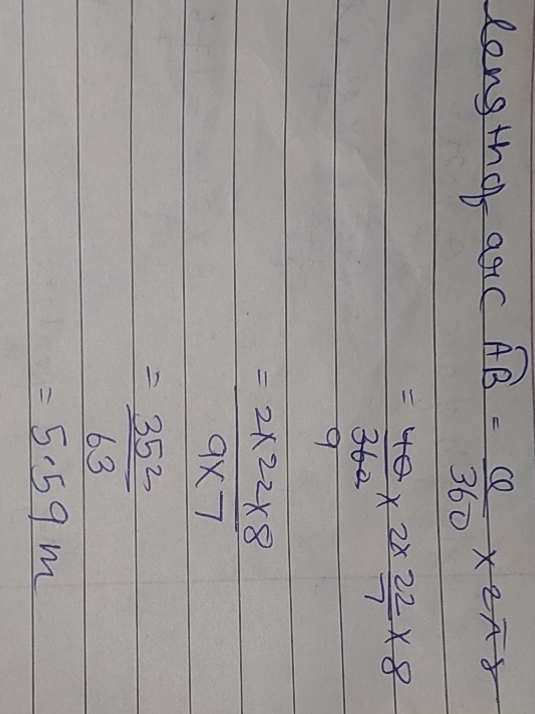 length of arc AB = θ/360 × 2πr
= 40/360 × 2×22/7 × 8
9
= 2×22×8/9×7
= 352/63
= 5.59 m